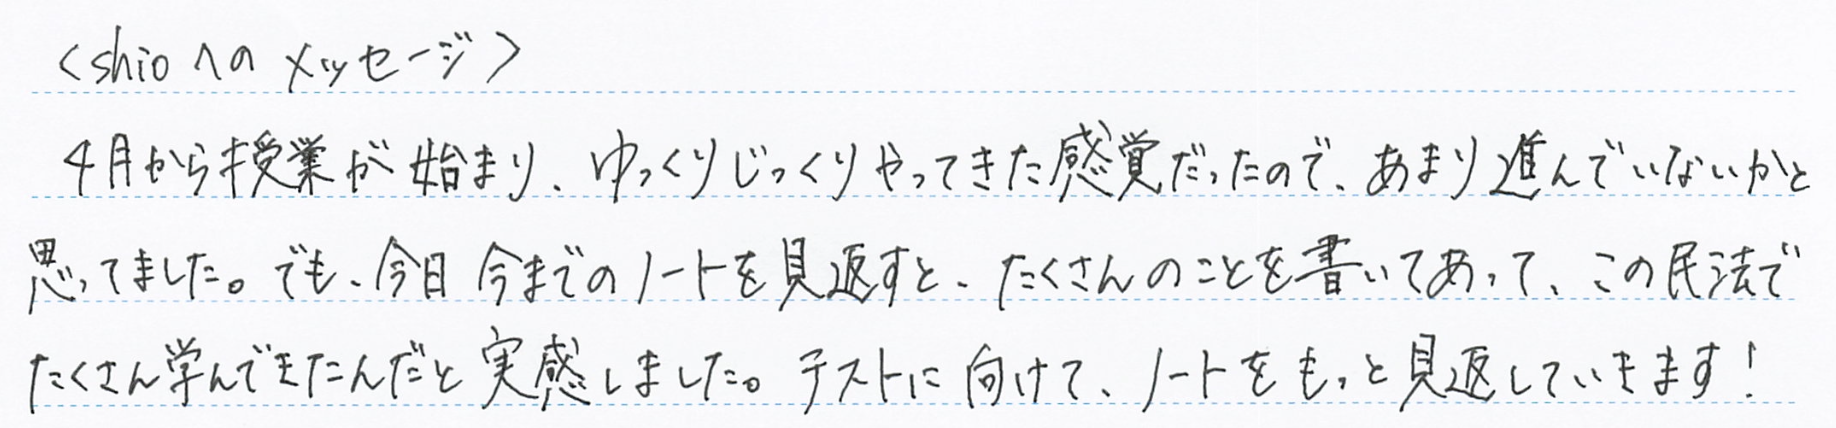 <shioへのメッセージ>
4月から授業が始まり、ゆっくりじっくりやってきた感覚だったので、あまり進んでいないかと
思ってました。でも、今日今までのノートを見返すと、たくさんのことを書いてあって、この民法で
たくさん学んできたんだと実感しました。テストに向けて、ノートをもっと見返していきます!